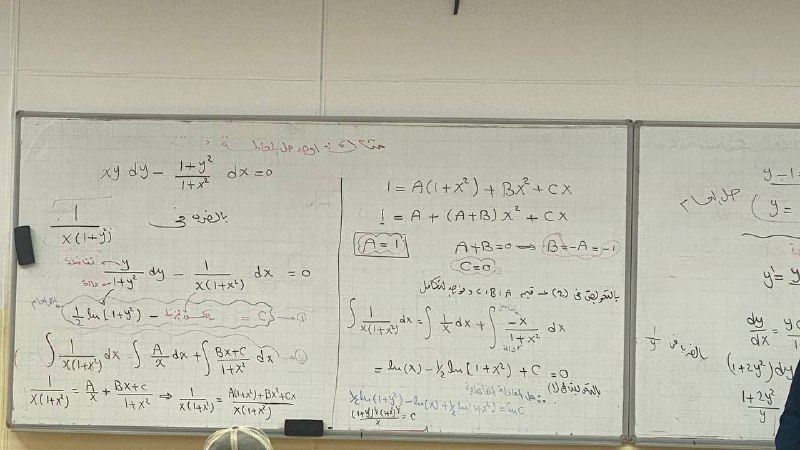 أوجد حل المعادلة
xy dy − (1+y²)/(1+x²) dx = 0
بالضرب في
1/(x(1+y²))
y/(1+y²) dy − 1/(x(1+x²)) dx = 0
½ ln[1+y²) − = C → ①
∫ 1/(x(1+x²)) dx = ∫ A/x dx + ∫ (Bx+C)/(1+x²) dx
1/(x(1+x²)) = A/x + (Bx+C)/(1+x²) ⇒ 1/(x(1+x²)) = (A(1+x²)+Bx²+Cx)/(x(1+x²))
1 = A(1+x²) + Bx² + Cx
1 = A + (A+B)x² + Cx
A = 1 A+B=0 ⟹ B=−A=−1
C=0
بالتعويض في (2) عن قيم A, B, C
∫ 1/(x(1+x²)) dx = ∫ 1/x dx + ∫ −x/(1+x²) dx
= ln(x) − ½ ln[1+x²) + C = 0
بالتعويض في (1)
½ ln(1+y²) − ln(x) + ½ ln(1+x²) = ln C
= C
y−1=
(y =
y' = y
بالضرب في 1/y
dy/dx =
(1+2y²)dy
(1+2y²)/y